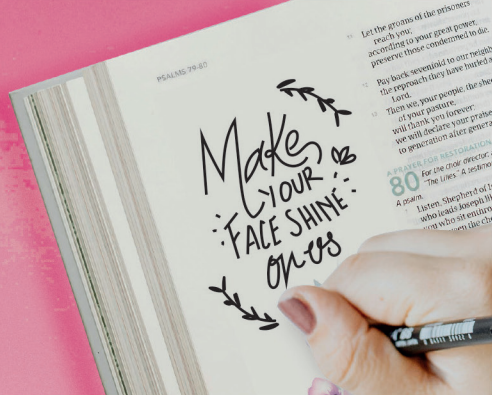 PSALMS 79-80
Make
YOUR
FACE SHINE
on us
Let the groans of the prisoners
reach you;
according to your great power,
preserve those condemned to die.
Pay back sevenfold to our neighb
the reproach they have hurled a
Lord.
Then we, your people, the she
of your pasture,
will thank you forever;
we will declare your praise
to generation after genera
A PRAYER FOR RESTORATION
80 For the choir director:
"The Lilies." A testimo
A psalm.
Listen, Shepherd of I
who leads Joseph li
you who sit enthro